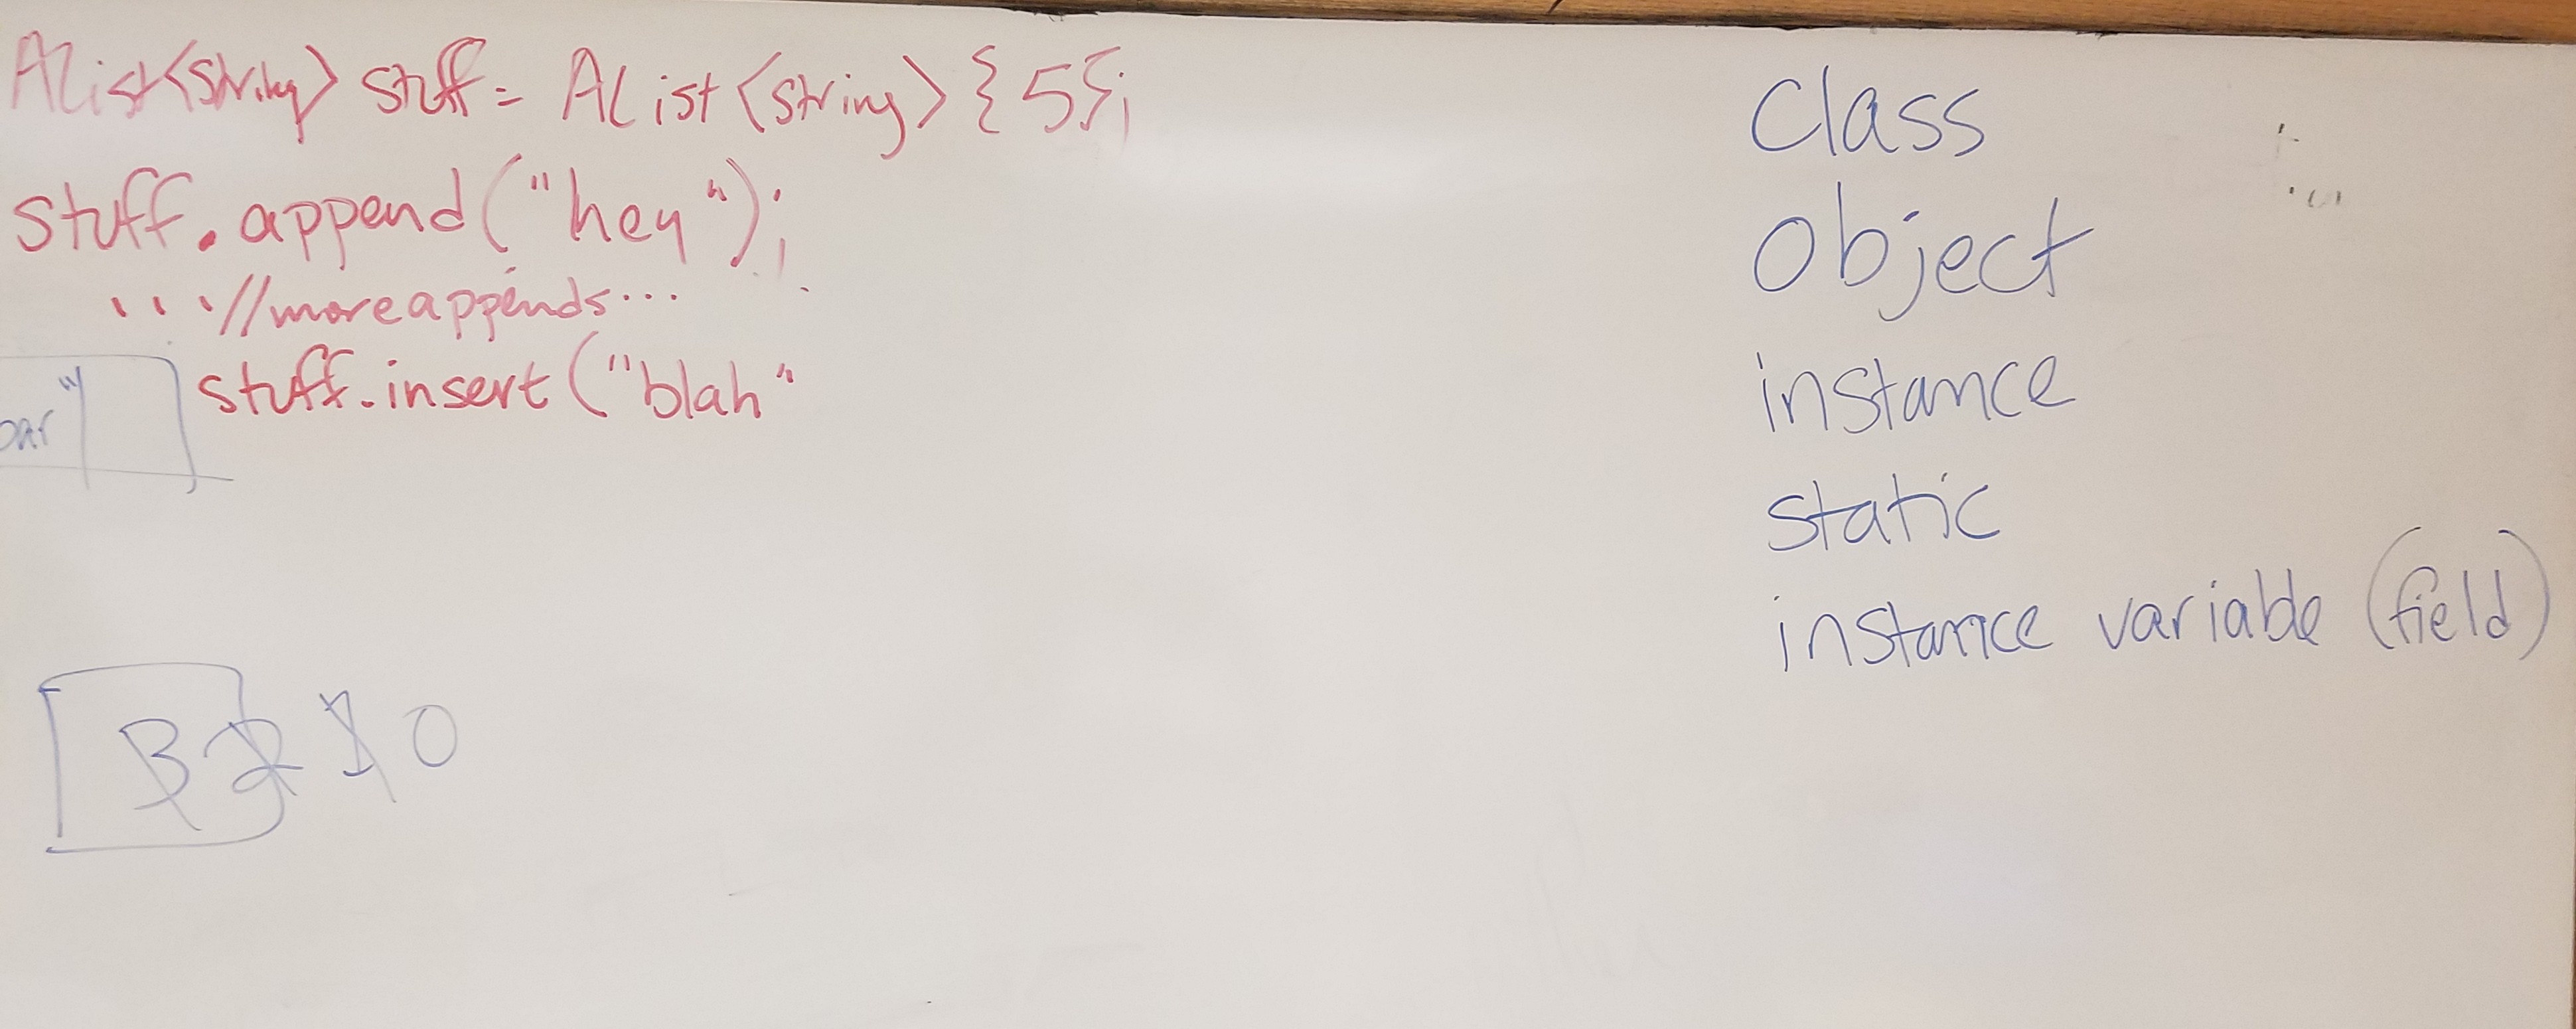 AList<string> stuff = AList<string>{5};
stuff.append("hey");
...//more appends...
stuff.insert("blah"
bar"
3 2 1 0
class
object
instance
static
instance variable (field)